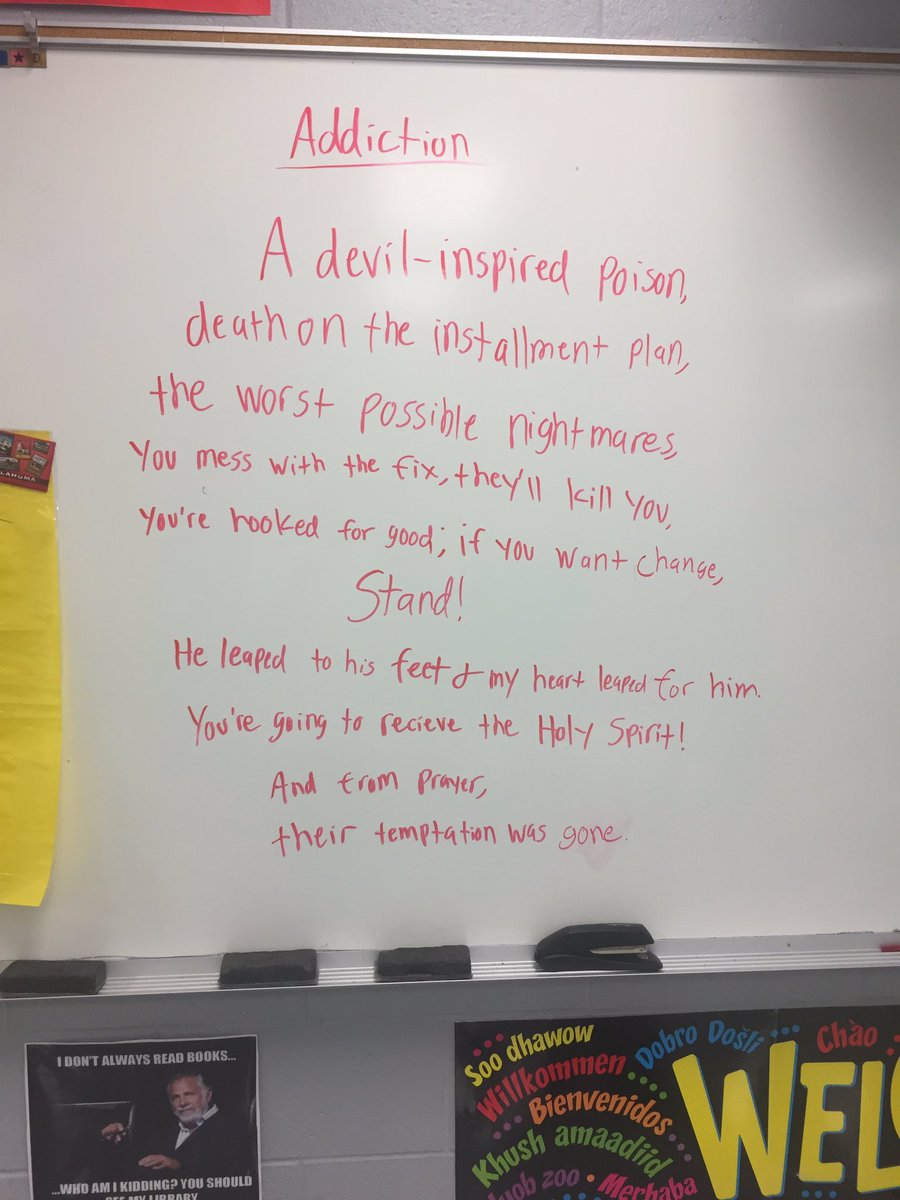 Addiction
A devil-inspired poison,
death on the installment plan,
the worst possible nightmares,
You mess with the fix, they'll kill you,
You're hooked for good; if you want change,
Stand!
He leaped to his feet & my heart leaped for him.
You're going to recieve the Holy Spirit!
And from prayer,
their temptation was gone.
LAHOMA
I DON'T ALWAYS READ BOOKS...
...WHO AM I KIDDING? YOU SHOULD
SEE MY LIBRARY
Soo dhawow
Dobro Došli
Chào
Willkommen
Bienvenidos
Khush amaadiid
zoo • Merhaba
WEL